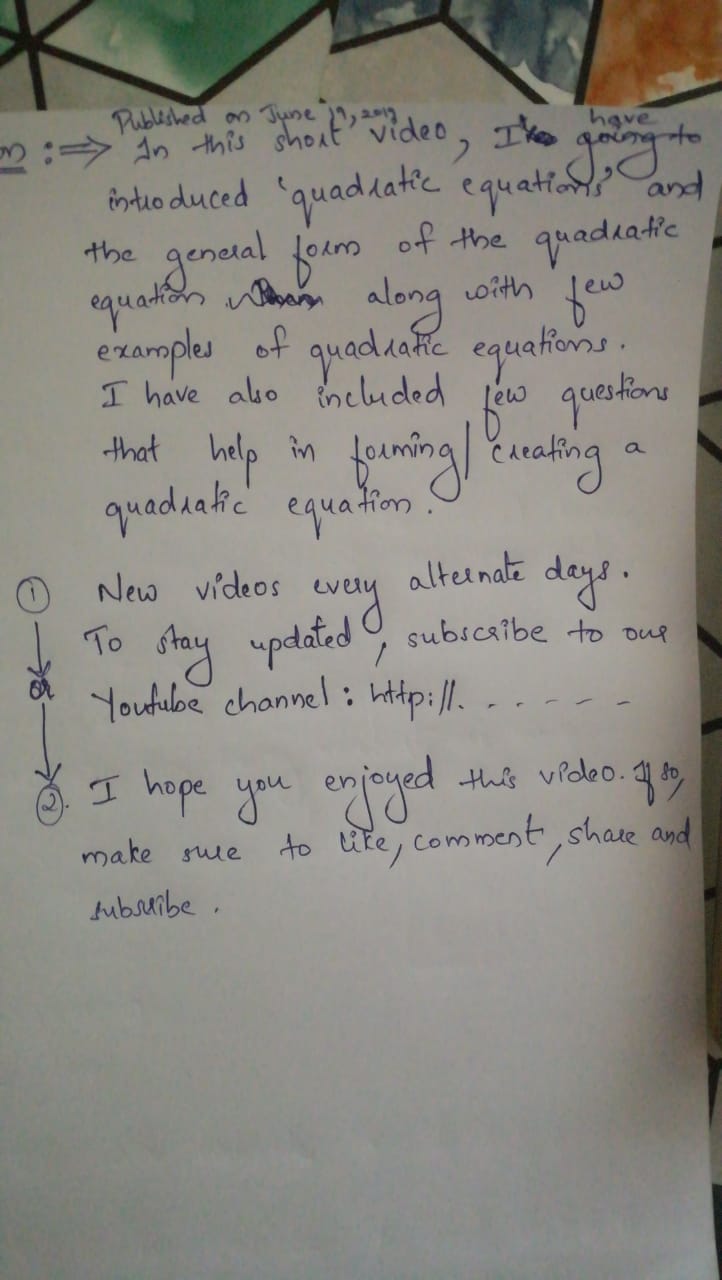 Published on June 19, 2019
n :⇒ In this short video, I have going to
introduced 'quadratic equations' and
the general form of the quadratic
equation along with few
examples of quadratic equations.
I have also included few questions
that help in forming/creating a
quadratic equation.
① New videos every alternate days.
To stay updated, subscribe to our
or Youtube channel: http://. - - - - -
②. I hope you enjoyed this video. If so,
make sure to like, comment, share and
subscribe.